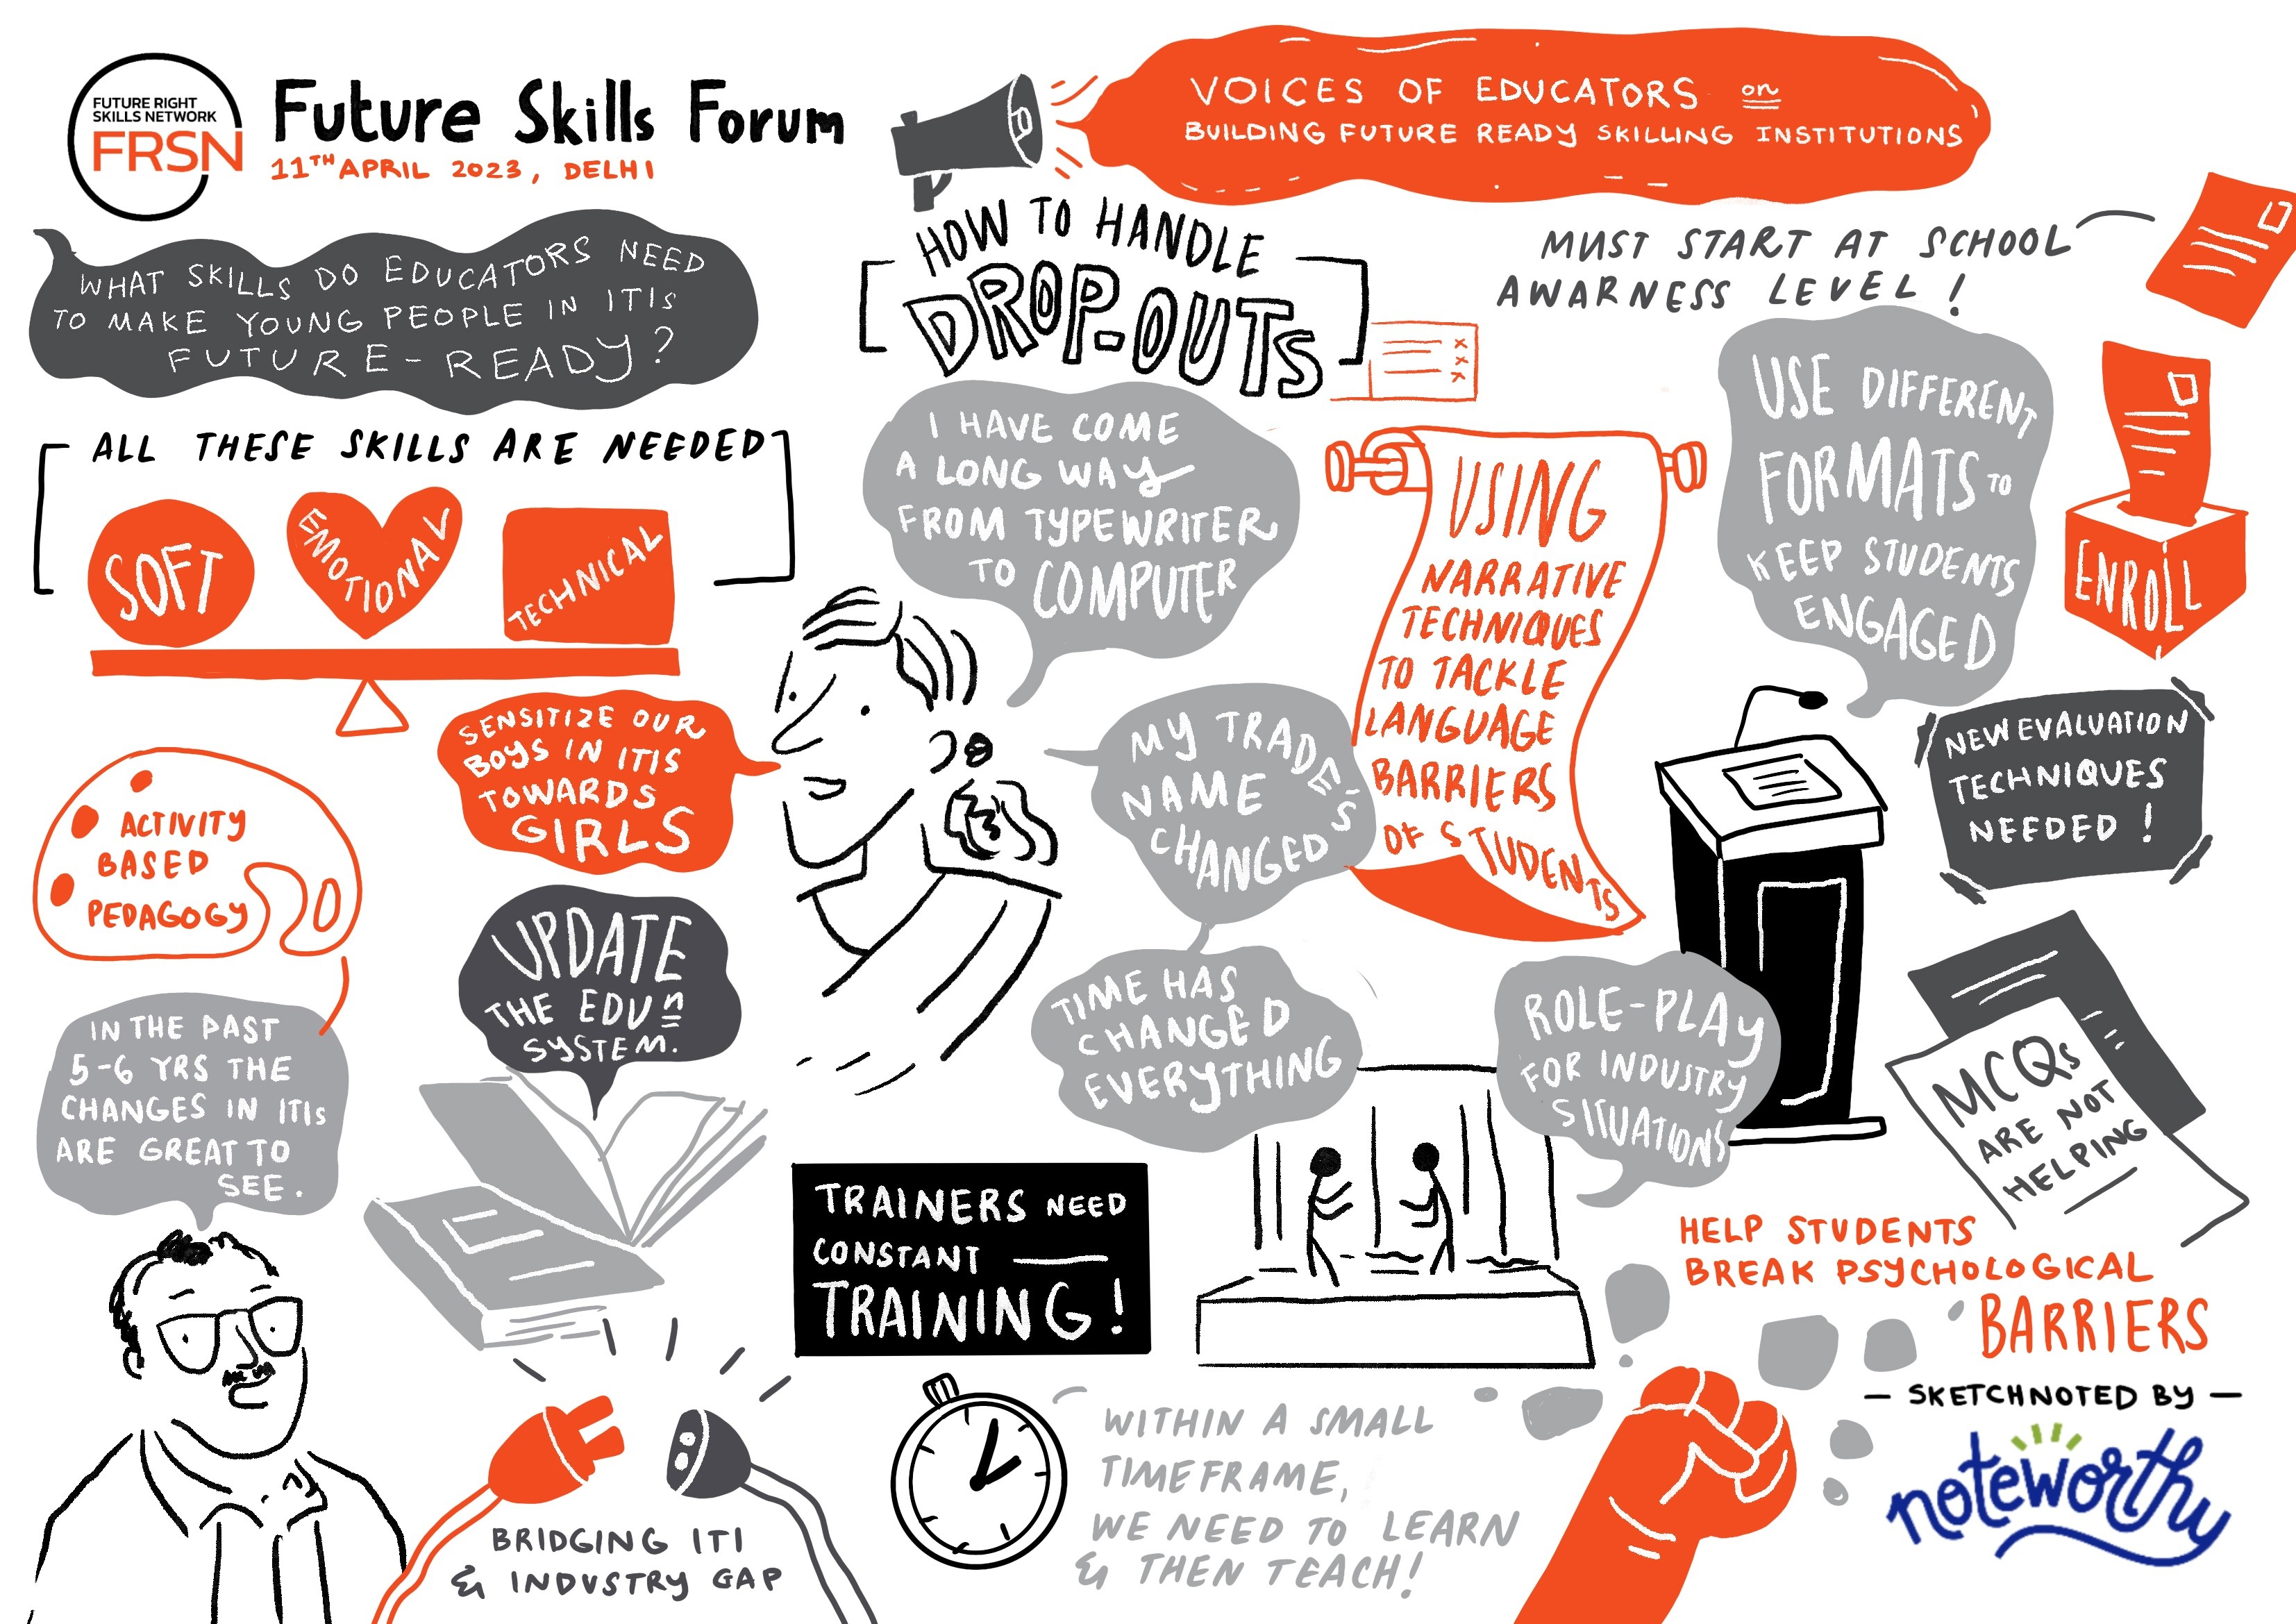 FUTURE RIGHT
SKILLS NETWORK
FRSN
Future Skills Forum
11TH APRIL 2023, DELHI
VOICES OF EDUCATORS on
BUILDING FUTURE READY SKILLING INSTITUTIONS
WHAT SKILLS DO EDUCATORS NEED
TO MAKE YOUNG PEOPLE IN ITIs
FUTURE-READY?
ALL THESE SKILLS ARE NEEDED
SOFT
EMOTIONAL
TECHNICAL
SENSITIZE OUR
BOYS IN ITIs
TOWARDS
GIRLS
ACTIVITY
BASED
PEDAGOGY
UPDATE
THE EDUn
SYSTEM.
IN THE PAST
5-6 YRS THE
CHANGES IN ITIs
ARE GREAT TO
SEE.
BRIDGING ITI
& INDUSTRY GAP
HOW TO HANDLE
DROP-OUTS
MUST START AT SCHOOL
AWARNESS LEVEL!
I HAVE COME
A LONG WAY
FROM TYPEWRITER
TO COMPUTER
MY TRADE'S
NAME
CHANGED
TIME HAS
CHANGED
EVERYTHING
USING
NARRATIVE
TECHNIQUES
TO TACKLE
LANGUAGE
BARRIERS
OF STUDENTS
USE DIFFERENT
FORMATS TO
KEEP STUDENTS
ENGAGED
ENROLL
NEW EVALUATION
TECHNIQUES
NEEDED!
MCQs
ARE NOT
HELPING
ROLE-PLAY
FOR INDUSTRY
SITUATIONS
TRAINERS NEED
CONSTANT
TRAINING!
WITHIN A SMALL
TIMEFRAME,
WE NEED TO LEARN
& THEN TEACH!
HELP STUDENTS
BREAK PSYCHOLOGICAL
BARRIERS
— SKETCHNOTED BY —
noteworthy